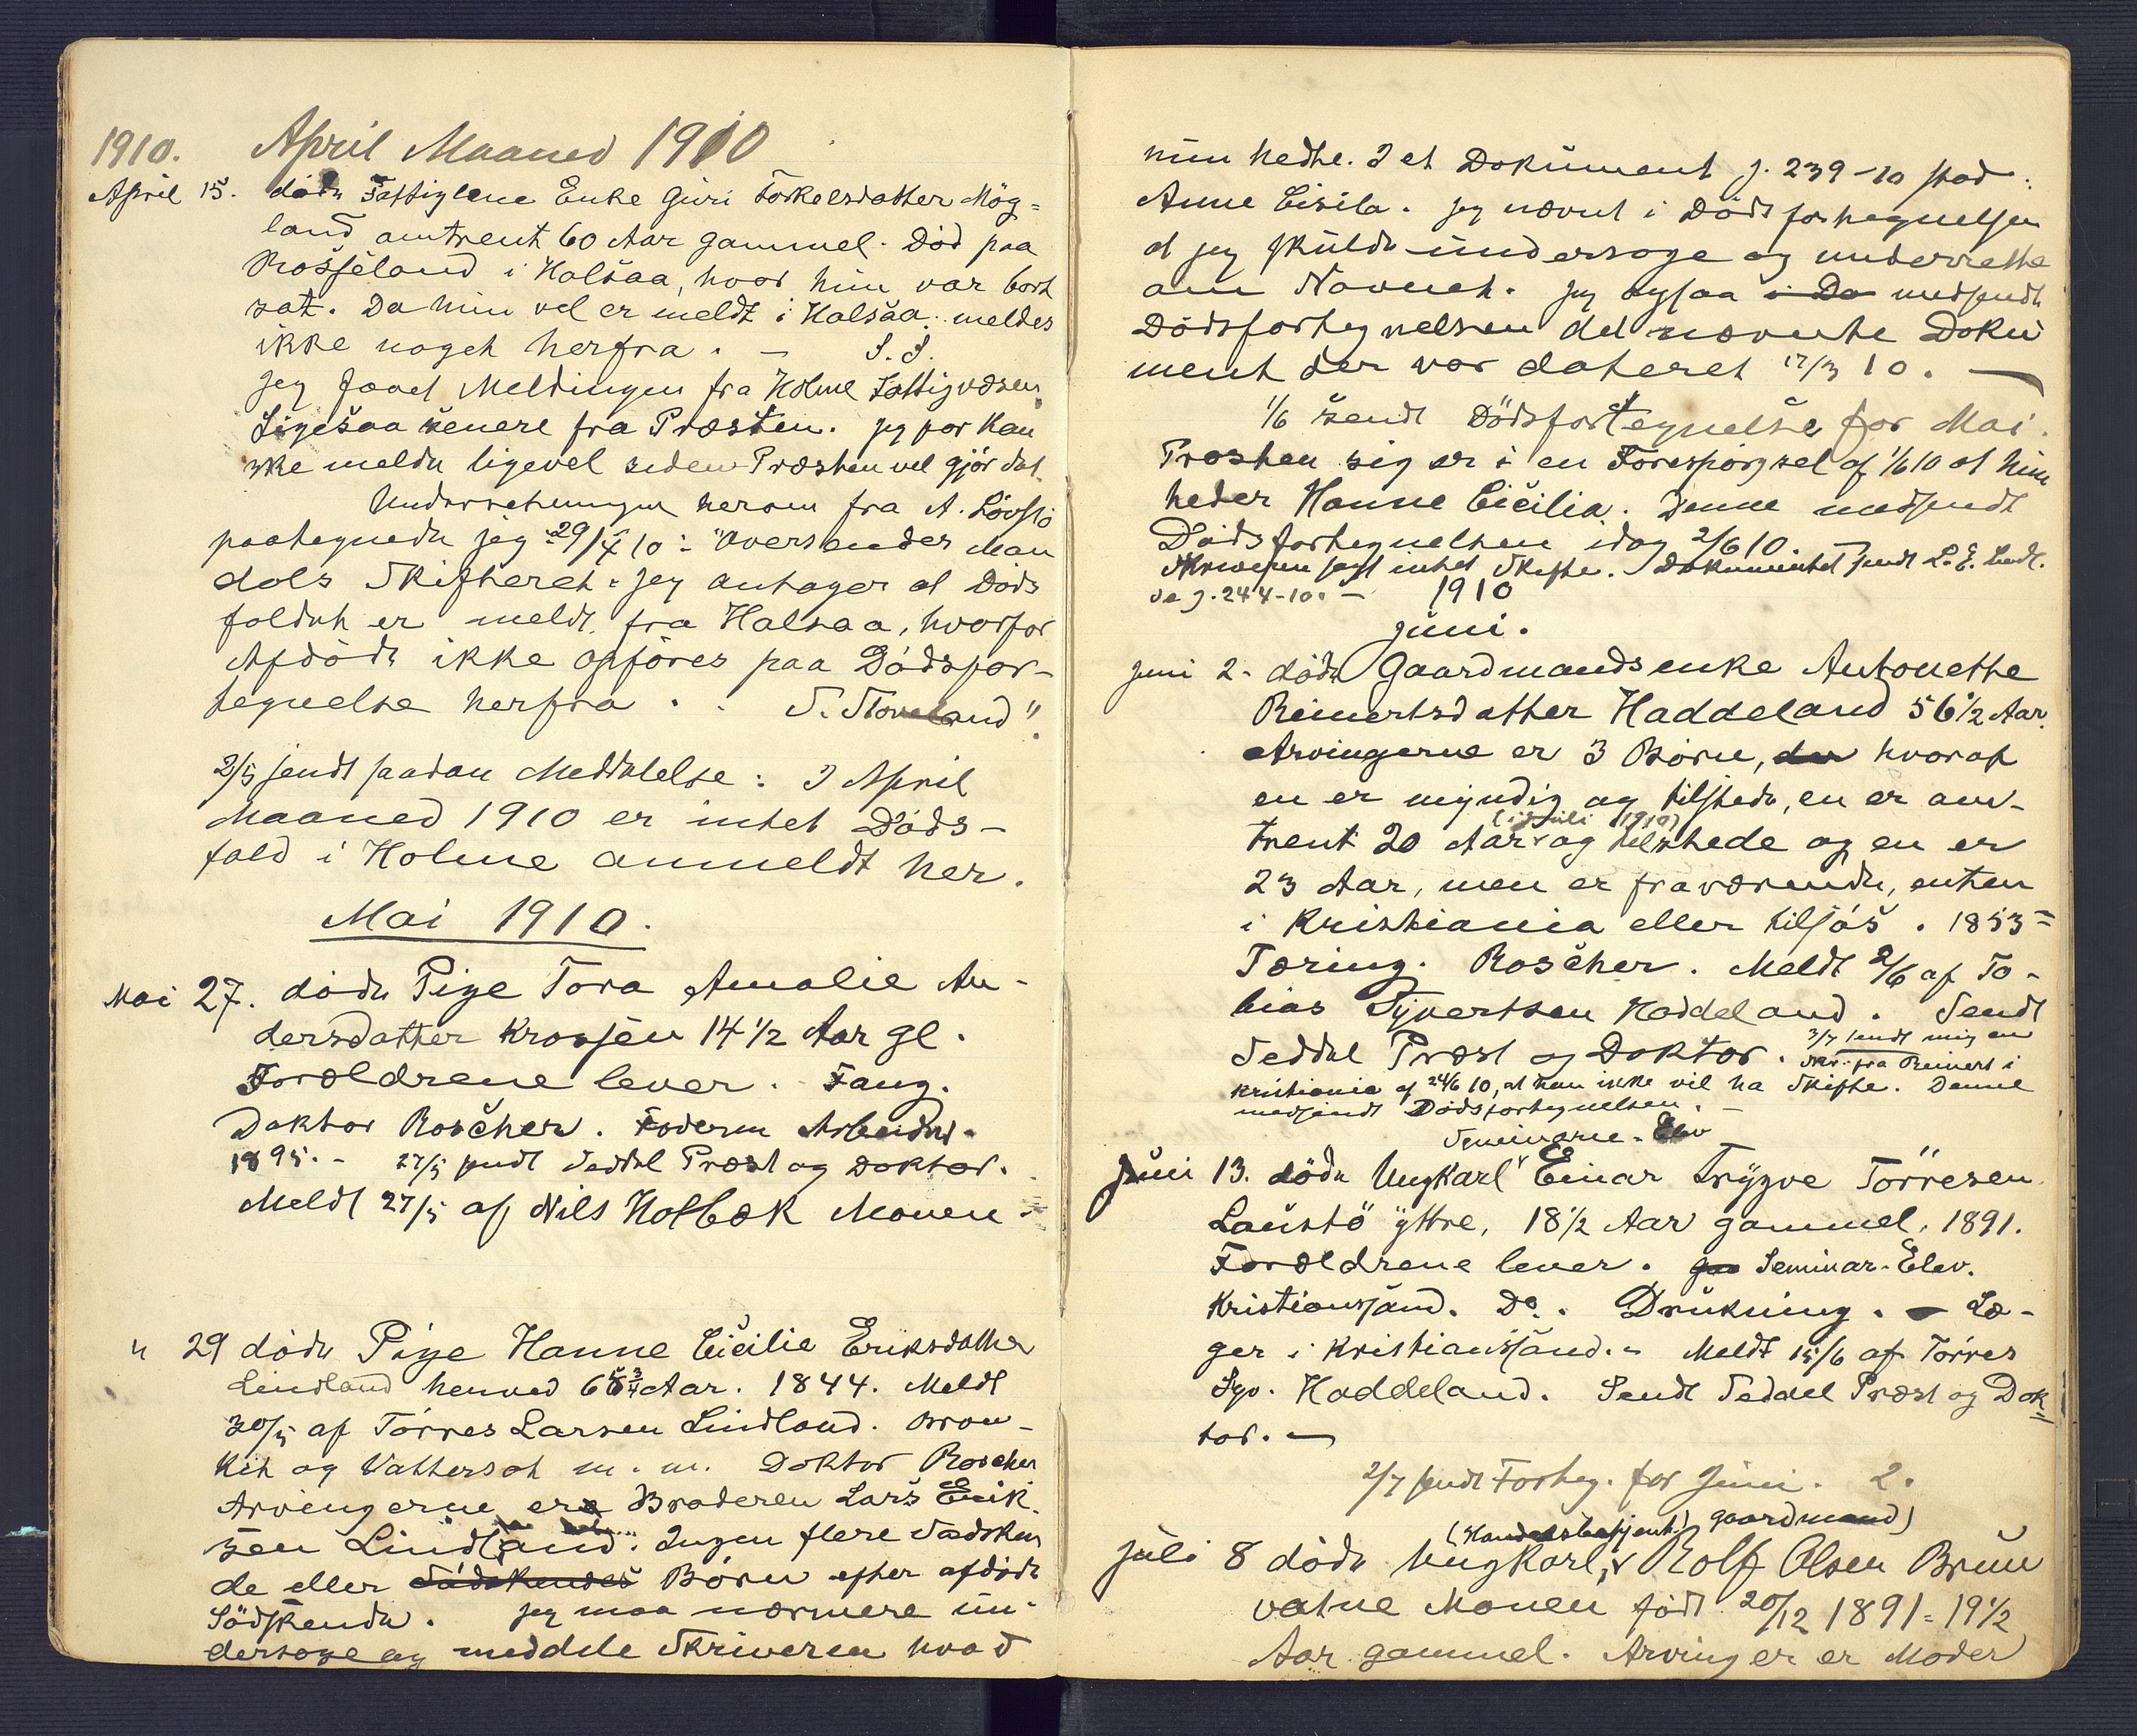 1910. April Maaned 1910
April 15. döde Fattiglem Enke Guri Torkelsdatter Mög=
land omtrent 60 Aar gammel. Död paa
Rosseland i Halsaa, hvor hun var bort
sat. Da hun vel er meldt i Halsaa meldes
ikke noget herfra. — S.S.
Jeg faaet Meldingen fra Holme Fattigvæsen
Ligesaa senere fra Præsten. Jeg for kan
ske melde ligevel siden Præsten vel gjör det.
Underretningen herom fra A. Lövslö
paategnede jeg 29/4 10: "Oversendes Man
dals Skifteret. Jeg antager at Döds
faldet er meldt fra Halsaa, hvorfor
Afdöde ikke opföres paa Dödsfor-
tegnelse herfra. S. Stoveland".
2/5 sendt saadan Meddelelse: I April
Maaned 1910 er intet Döds-
fald i Holme anmeldt her.
Mai 1910.
Mai 27. döde Pige Tora Amalie An-
dersdatter Krossen 14 1/2 Aar gl.
Forældrene lever. Tæng.
Doktor Roscher. Faderen Arbeider.
1895. - 27/5 sendt Seddel Præst og Doktor.
Meldt 27/5 af Nils Holbæk Monen
" 29 döde Pige Hanne Cicilie Eriksdatter
Lindland henved 65 3/4 Aar. 1844. Meldt
30/5 af Törres Larsen Lindland. Bron-
kit og Vattersot m. m. Doktor Roscher
Arvingerne er Broderen Lars Erik
sen Lindland. Ingen flere Södsken
de eller Södskendes Börn efter afdöde
Södskende. Jeg maa nærmere un-
dersöge og meddele Skriveren hvad
hun hedte. I et Dokument J. 239-10 stod:
Anne Cisila. Jeg nævnt i Dödsfortegnelsen
at jeg skulde undersöge og underrette
om Navnet. Jeg ogsaa i Dö medsendt
Dödsfortegnelsen det nævnte Doku
ment der var dateret 17/3 10. —
1/6 sendt Dödsfortegnelse for Mai.
Præsten sig er i en Forespörgsel af 1/6 10 at hun
heder Hanne Cicilia. Denne medsendt
Dödsfortegnelsen idag 2/6 10. —
Skriveren sagt intet Skifte. Dokumentet sendt L.E. Lindl.
se J. 244-10. — 1910
Juni.
Juni 2. döde Gaardmandsenke Antonette
Reinertsdatter Haddeland 56 1/2 Aar.
Arvingerne er 3 Börn, der hvoraf
en er myndig og tilstede, en er om-
(i Juli 1910)
trent 20 Aar og tilstede og en er
23 Aar, men er fraværende, enten
i Kristiania eller tilsjös. 1853 =
Tæring. Roscher. Meldt 2/6 af To-
bias Syvertsen Haddeland. Sendt
Seddel Præst og Doktor. 3/7 sendt mig en
Skr. fra Reinert i
Kristiania af 24/6 10, at han ikke vil ha Skifte. Denne
medsendt Dödsfortegnelsen. —
Seminarie-Elev
Juni 13. döde Ungkarl Einar Trygve Törresen
Laustö yttre, 18 1/2 Aar gammel. 1891.
Forældrene lever. Seminar-Elev.
Kristiansand. Do. Drukning. — Læ-
ger i Kristiansand. - Meldt 15/6 af Törres
Syv. Haddeland. Sendt Seddel Præst og Dok=
tor. —
2/7 sendt Forteg. for Juni. 2.
(Handelsbetjent) gaardmand)
Juli 8 döde Ungkarl, Rolf Olsen Brun
vatne Monen födt 20/12 1891 = 19 1/2
Aar gammel. Arvinger er Moder